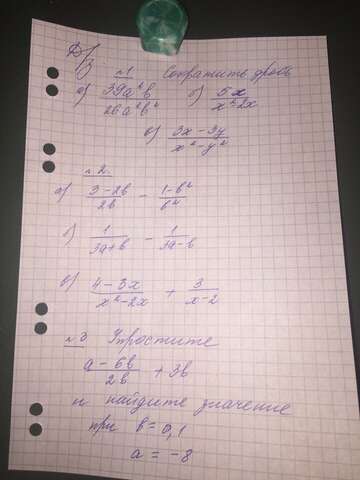 Д/з
№1 Сократить дробь
а) 39a³b / 26a²b² б) 5x / x²2x
в) 3x-3y / x²-y²
№2.
а) 3-2b / 2b - 1-b² / b²
б) 1 / 3a+b - 1 / 3a-b
в) 4-3x / x²-2x + 3 / x-2
№3 Упростите
a-6b / 2b + 3b
и найдите значение
при b=0,1
a = -8